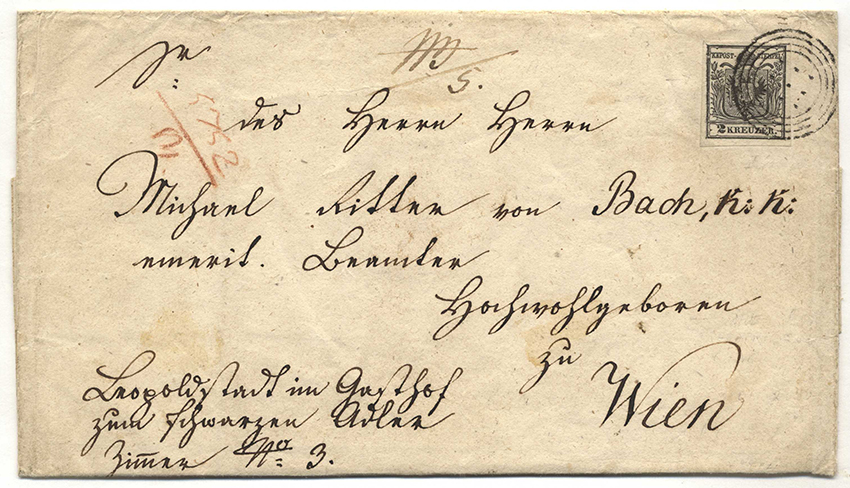 Sr:
5.
KKPOST-STEMPEL
2 KREUZER.
5752
des Herrn Herrn
Michael Ritter von Bach, k: k:
emerit. Beamter
Hochwohlgeboren
zu
Wien
Leopoldstadt im Gasthof
zum schwarzen Adler
Zimmer No: 3.